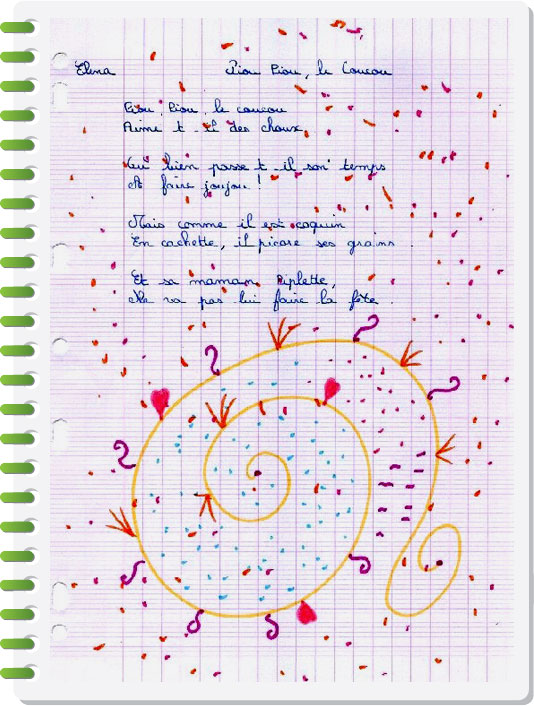 Elina Piou Piou, le Coucou
Piou, Piou, le coucou
Aime t-il des choux,
Où bien passe t-il son temps
A faire joujou !
Mais comme il est coquin
En cachette, il picore ses grains.
Et sa maman Piplette,
Ne va pas lui faire la fête.